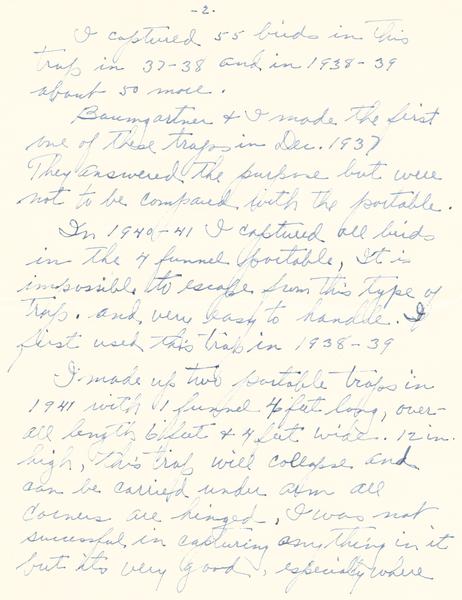 -2-
I captured 55 birds in this
trap in 37-38 and in 1938-39
about 50 more.
Baumgartner & I made the first
one of these traps in Dec. 1937
They answered the purpose but were
not to be compared with the portable.
In 1940-41 I captured all birds
in the 4 funnel portable, It is
impossible to escape from this type of
trap. and very easy to handle. I
first used this trap in 1938-39
I made up two portable traps in
1941 with 1 funnel 4 feet long, over-
all length 6 feet & 4 feet wide. 12 in.
high, this trap will collapse and
can be carried under arm all
corners are hinged, I was not
successful in capturing anything in it
but its very good, especially where